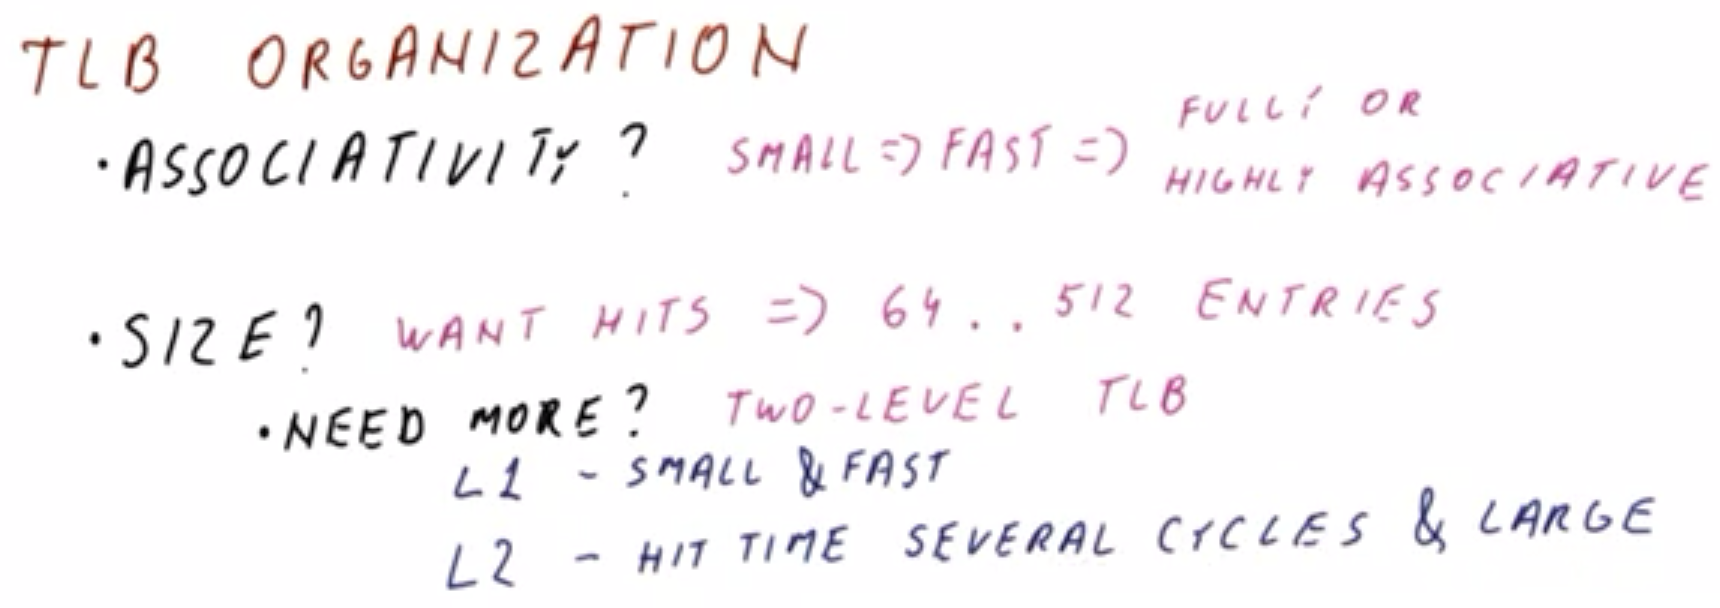 TLB ORGANIZATION
· ASSOCIATIVITY? SMALL => FAST => FULLY OR HIGHLY ASSOCIATIVE
· SIZE? WANT HITS => 64..512 ENTRIES
· NEED MORE? TWO-LEVEL TLB
L1 - SMALL & FAST
L2 - HIT TIME SEVERAL CYCLES & LARGE